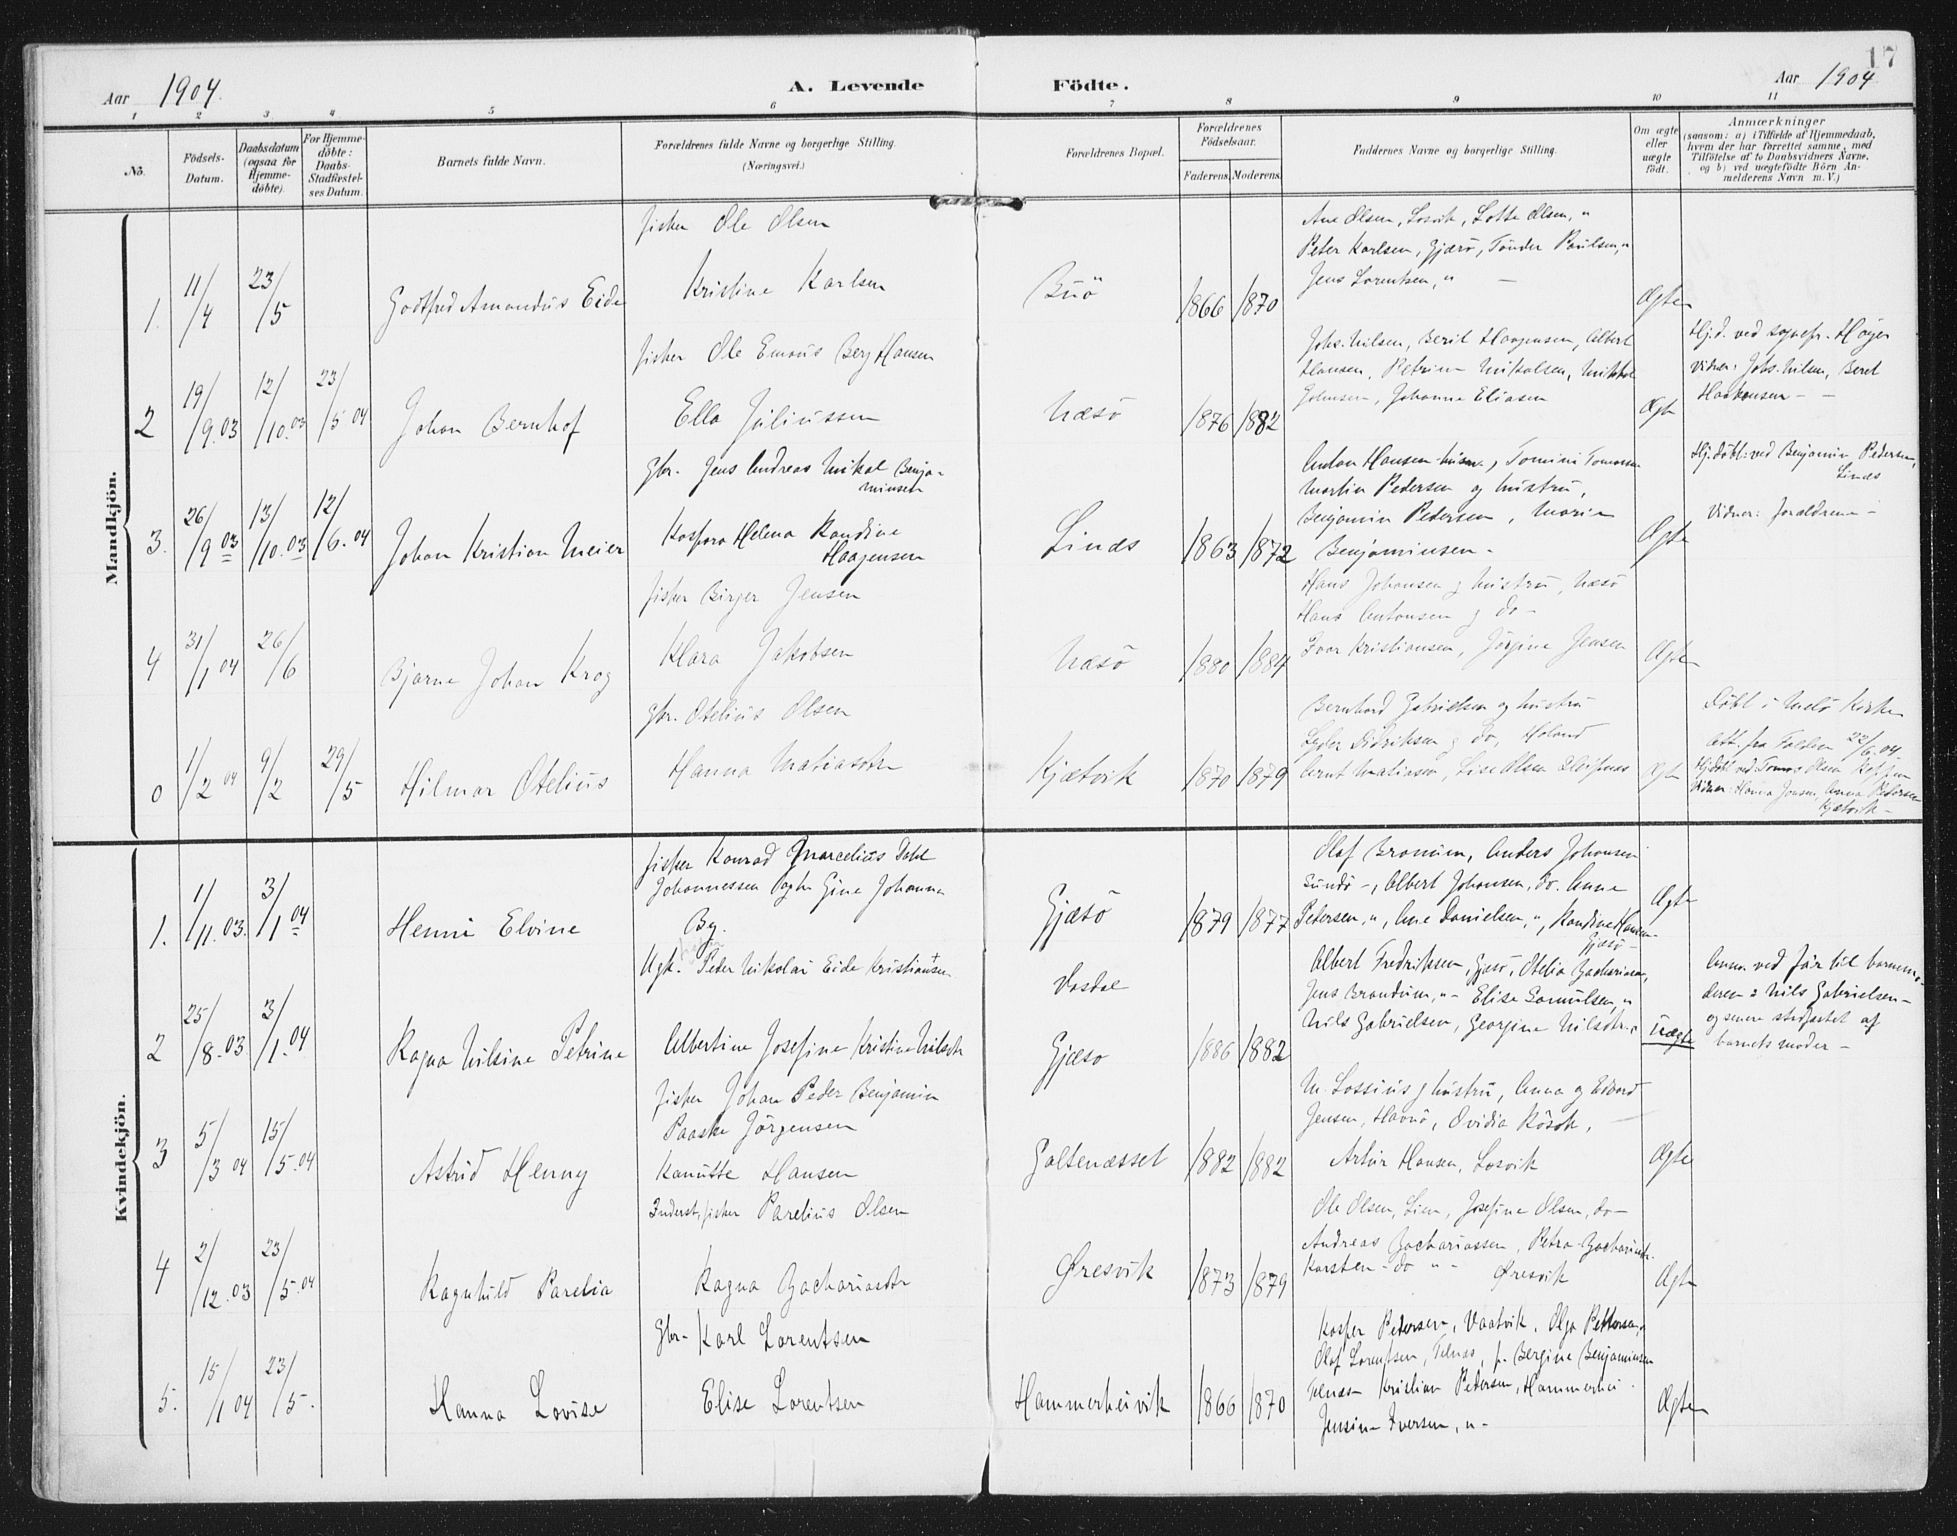 17
Aar 1904.
A. Levende
Födte.
Aar 1904
1 2 3 4 5 6 7 8 9 10 11
No.
Födsels-Datum.
Daabsdatum (ogsaa for Hjemme-döbte).
For Hjemme-döbte: Daabs-Stadfæstel-ses Datum.
Barnets fulde Navn.
Forældrenes fulde Navne og borgerlige Stilling.
(Næringsvei.)
Forældrenes Bopæl.
Forældrenes Födselsaar.
Faderens. Moderens.
Faddernes Navne og borgerlige Stilling.
Om ægte eller uægte födt.
Anmærkninger
(saasom: a) i Tilfælde af Hjemmedaab,
hvem der har forrettet samme, med
Tilföielse af to Daabsvidners Navne,
og b) ved uægtefödte Börn An-
melderens Navn m. V.)
Mandkjön.
1. 11/4 23/5 Godtfred Amandus Eide
fisker Ole Olsen
Kristine Karlsen
Buö 1866 1870
Ane Olsen, Losvik, Lotte Olsen, "
Peter Karlsen, Gjærö, Tönder Paulsen, "
Jens Lorentsen, " —
Ægte
2 19/9.03 12/10.03 23/5 04 Johan Bernhof
fisker Ole Emaus Berg Hansen
Ella Juliussen
Næsö 1876 1882
Johs. Nilsen, Berit Haagensen, Albert
Hansen, Petrine Nikolsen, Nikkol
Johnsen, Johanne Eliasen
Ægte
Hj.d. ved sognepr. Høyer
Vidner: Johs. Nilsen, Beret
Haakonsen — —
3. 26/9 03 13/10.03 12/6.04 Johan Kristian Meier
Gbr. Jens Andreas Mikal Benja-
minsen
Kaspara Helena Randine
Haagensen
Linæs 1863 1872
Anton Hansen, Tomine Tomassen
Martin Pedersen og hustru,
Benjamin Pedersen, Marie
Benjaminsen -
Ægte
Hj. döbt ved Benjamin Pedersen,
Linæs
Vidner: Forældrene -
4 31/1 04 26/6 Bjarne Johan Krog
fisker Birger Jensen
Klara Jakobsen
Næsö 1880 1884
Hans Johansen og hustru, Næsö
Hans Antonsen og do -
Ivar Kristiansen, Jörgine Jensen
Ægte
0 1/2 04 9/2 29/5 Hilmar Otelius
gbr. Otelius Olsen
Hanna Matiasdtr
Kjætvik 1870 1879
Bernhard Gabrielsen og hustru
Didriksen og do,
Arnt Matiassen, Lise Olsen
Ægte
Döbt i Melö Kirke
Att. fra 22/6.04
Hjdöbt ved Tomas Olsen
Vidner: Hanna Jensen, Anna Petersen
Kjætvik -
Kvindekjön.
1. 1/11.03. 3/1 04 Henni Elvine
fisker Konrad Marcelius Dahl
Johannessen og Gine Johanna
By.
Gjæsö 1879 1877
Olaf Bronum, Anders Johansen
Sundö -, Albert Johansen, do. Anne
Petersen, ", Ane Danielsen, ", Randine Hansen
Gjæsö -
Ægte
2 25/8.03 3/1.04 Ragna Nilsine Petrine
Ugk. Peder Nikolai Eide Kristiansen
Albertine Josefine Kristine Nilsdtr
Vasdal
Gjæsö 1886 1882
Albert Fredriksen, Gjæsö, Otelia Zachariasen,
Jens Brandum, " - Elise Samulsen, "
Nils Gabrielsen, Georgine Nilsdtr. "
Uægte
Anm. ved far til barnemo-
deren: Nils Gabrielsen -
og senere stadfæstet af
barnets moder -
3 5/3 04 15/5.04 Astrid Henny
fisker Johan Peder Benjamin
Paaske Jörgensen
Kanutte Hansen
Galtenæsset 1882 1882
M. Lossius og hustru, Anna og Edvard
Jensen, Havnö, Ovidia
Artur Hansen, Losvik
Ægte
4 2/12.03 23/5.04 Ragnhild Parelia
Inderst, fisker Parelius Olsen
Ragna Zachariasdtr
Øresvik 1873 1879
Ole Olsen, Lien, Josefine Olsen, do -
Andreas Zachariassen, Petra Zachariasdtr.
Karsten - do " - Øresvik
Ægte
5. 15/1 04 23/5. Hanna Lovise
Gbr - Karl Lorentsen
Elise Lorentsen
Hammerheivik 1866 1870
Kasper Pedersen, Vaatvik, Olga Pettersen, "
Olaf Lorentsen, Telnæs, p. Bergine Benjaminsen
Telnæs - Kristian Pedersen, Hammerhei.
Jensine Iversen, " -
Ægte